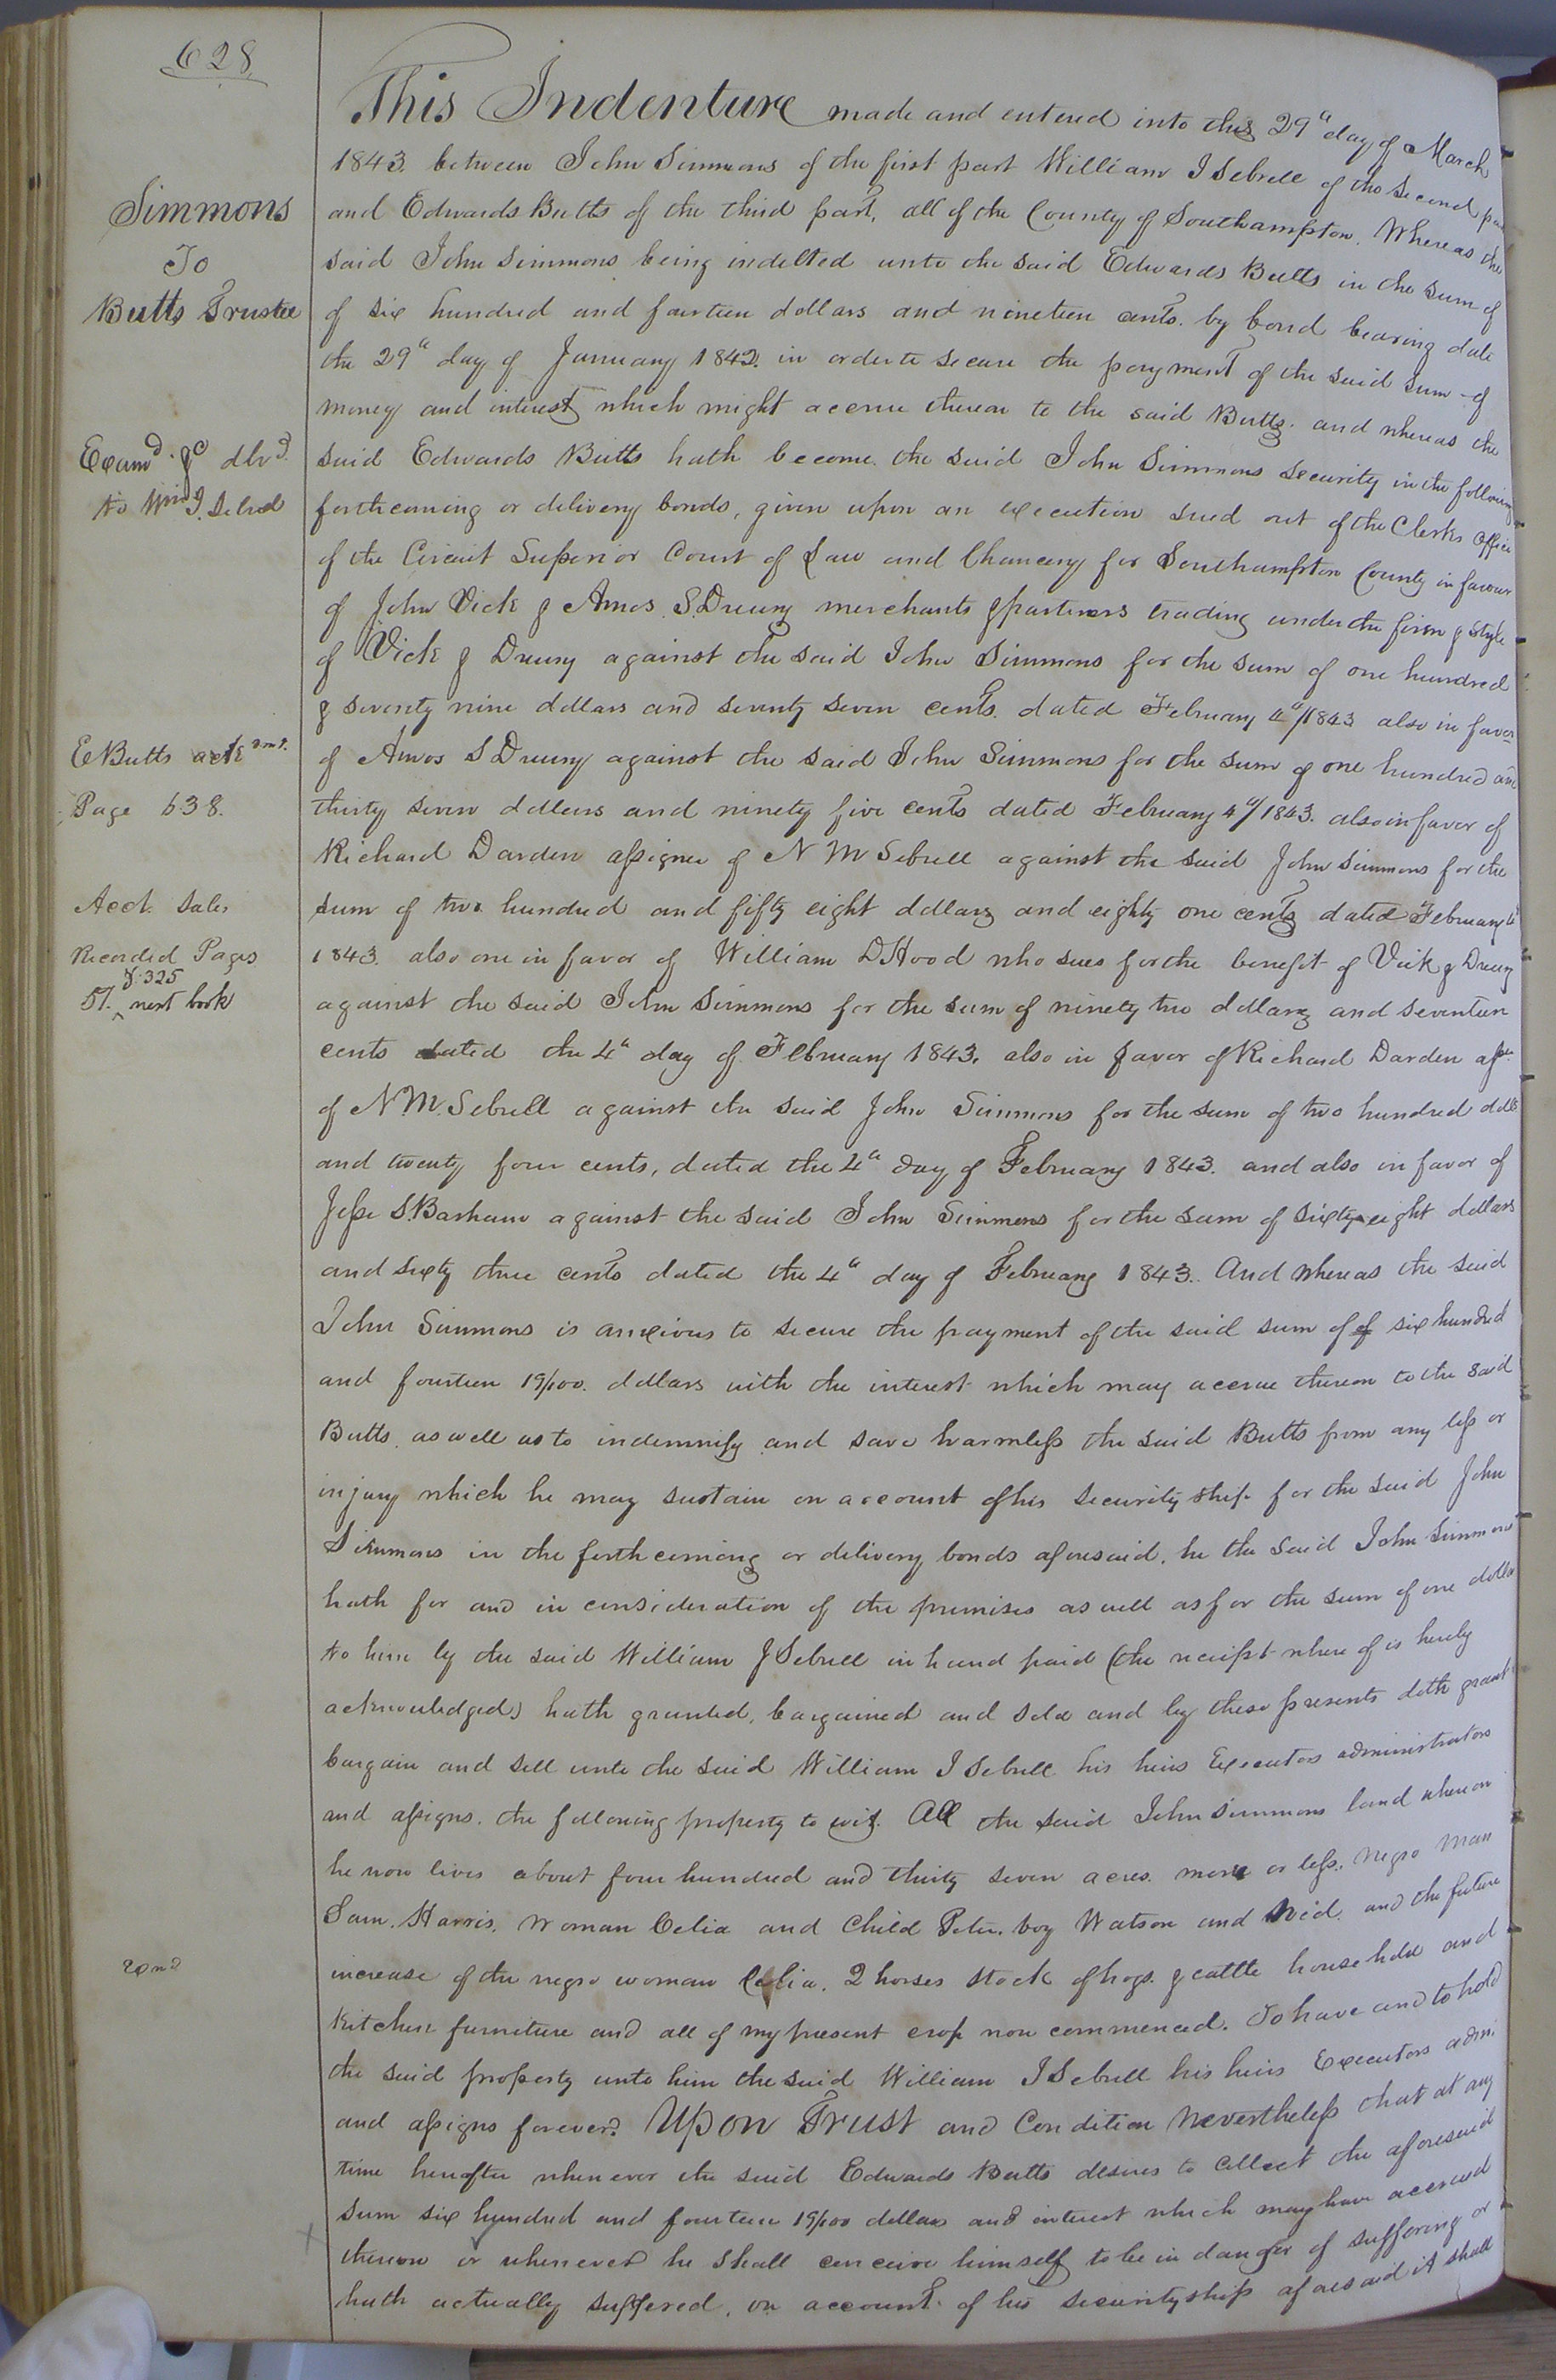 628
This Indenture made and entered into this 29" day of March
1843. between John Simmons of the first part William J Sebrell of the second par
Simmons
and Edwards Butts of the third part, all of the County of Southampton. Whereas the
To
said John Simmons being indebted unto the said Edwards Butts in the sum of
Butts Trustee
of six hundred and fourteen dollars and nineteen cents. by bond bearing date
the 29" day of January 1842. in order to secure the payment of the said sum of
money and interest which might accrue thereon to the said Butts. and whereas the
Examd. & dlvd.
said Edwards Butts hath become the said John Simmons security in the following
to Wm J. Sebrell
forthcoming or delivery bonds, given upon an execution sued out of the Clerks Office
of the Circuit Superior Court of Law and Chancery for Southampton County in favour
of John Vick & Amos S. Drewry merchants & partners trading under the firm & style
of Vick & Drewry against the said John Simmons for the sum of one hundred
& seventy nine dollars and seventy seven cents. dated February 4"/1843 also in favor
E Butts
of Amos S Drewry against the said John Simmons for the sum of one hundred and
Page 638.
thirty seven dollars and ninety five cents dated February 4"/1843. also in favor of
Richard Darden assignee of N M Sebrell against the said John Simmons for the
Acct. Sales
sum of two hundred and fifty eight dollars and eighty one cents dated February 4"
Recorded Pages
1843. also one in favor of William D Hood who sues for the benefit of Vick & Drewry
& 325
51. next book
against the said John Simmons for the sum of ninety two dollars and seventeen
cents dated the 4" day of February 1843. also in favor of Richard Darden assee.
of N. M. Sebrell against the said John Simmons for the sum of two hundred dolls
and twenty four cents, dated the 4" day of February 1843. and also in favor of
Jesse S. Barham against the said John Simmons for the sum of sixty eight dollars
and sixty three cents dated the 4" day of February 1843. And whereas the said
John Simmons is anxious to secure the payment of the said sum of of six hundred
and fourteen 19/100. dollars with the interest which may accrue thereon to the said
Butts. as well as to indemnify and save harmless the said Butts from any loss or
injury which he may sustain on account of his securityship for the said John
Simmons in the forthcoming or delivery bonds aforesaid. he the said John Simmons
hath for and in consideration of the premises as well as for the sum of one dollar
to him by the said William J Sebrell in hand paid (the receipt where of is hereby
acknowledged) hath granted, bargained and sold and by these presents doth grant
bargain and sell unto the said William J Sebrell his heirs Executors administrators
and assigns. the following property to wit. All the said John Simmons land whereon
he now lives about four hundred and thirty seven acres. more or less. Negro Man
Sam. Harris. Woman Celia and Child Peter. boy Watson and Ned. and the future
increase of the negro woman Celia. 2 horses stock of hogs. & cattle household and
Kitchen furniture and all of my present crop now commenced. To have and to hold
the said property unto him the said William J Sebrell his heirs Executors admr.
and assigns forever. Upon Trust and Condition Nevertheless that at any
time hereafter whenever the said Edwards Butts desires to Collect the aforesaid
sum six hundred and fourteen 19/100 dollars and interest which may have accrued
thereon or whenever he shall conceive himself to be in danger of suffering or
hath actually suffered, on account. of his securityship aforesaid it shall